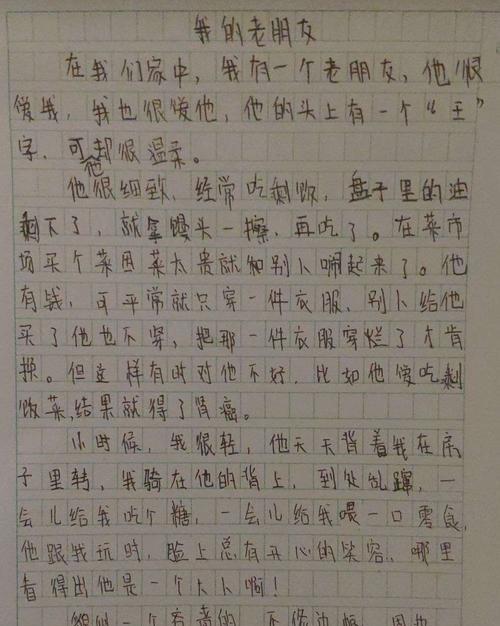 我的老朋友
在我们家中，我有一个老朋友，他很
爱我，我也很爱他，他的头上有一个“王”
字，可他却很温柔。
他很细致，经常吃剩饭，盘子里的油
剩下了，就拿馒头一擦，再吃了。在菜市
场买个菜因菜太贵就和别人闹起来了。他
有钱，可平常就只穿一件衣服，别人给他
买了他也不穿，把那一件衣服穿烂了才肯
换。但这样有时对他不好，比如他爱吃剩
饭菜，结果就得了肾癌。
小时候，我很轻，他天天背着我在房
子里转，我骑在他的背上，到处乱蹿，一
会儿给我吃个糖，一会儿给我喂一口零食，
他跟我玩时，脸上总有开心的笑容，哪里
看得出他是一个大人啊！
一个有考的，不修边幅，因为